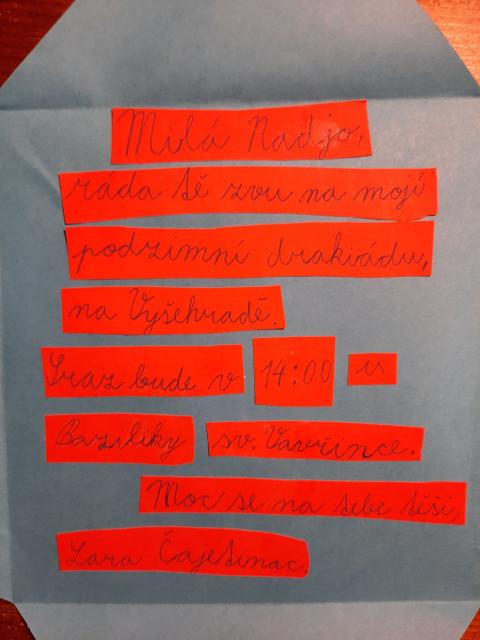 Milá Nadjo,
ráda tě zvu na mojí
podzimní drakiádu,
na Vyšehradě.
Sraz bude v 14:00 u
Baziliky sv. Vavřince.
Moc se na tebe těší,
Lara Čajetinac.